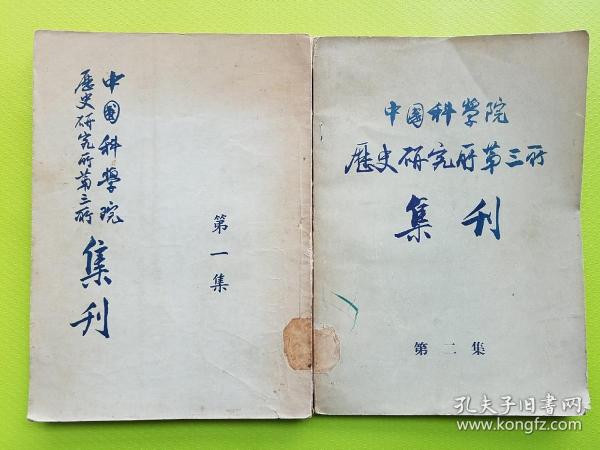 中國科學院
歷史研究所第三所
集刊
第一集
中國科學院
歷史研究所第三所
集刊
第二集
孔夫子旧书网
www.kongfz.com